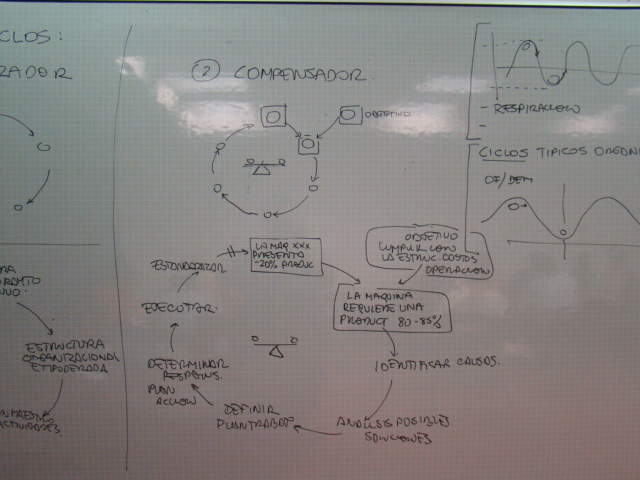 CICLOS:
ZADOR
ESTRUCTURA
ORGANIZACIONAL
② COMPENSADOR.
OBJETIVO
LA MAQ XXX
PRESENTO
-20% PRODUC
OBJETIVO
CUMPLIR CON
LA ESTRUC. COSTOS
OPERACION
LA MAQUINA
REQUIERE UNA
PRODUCT 80-85%
IDENTIFICAR CAUSAS.
ANALISIS POSIBLES
SOLUCIONES
DEFINIR
PLAN TRABAJO
DETERMINAR
RESPONS.
PLAN
ACCION
EJECUTAR
ESTANDARIZAR
RESPIRACION
CICLOS TIPICOS ORGANI
OF/DEM